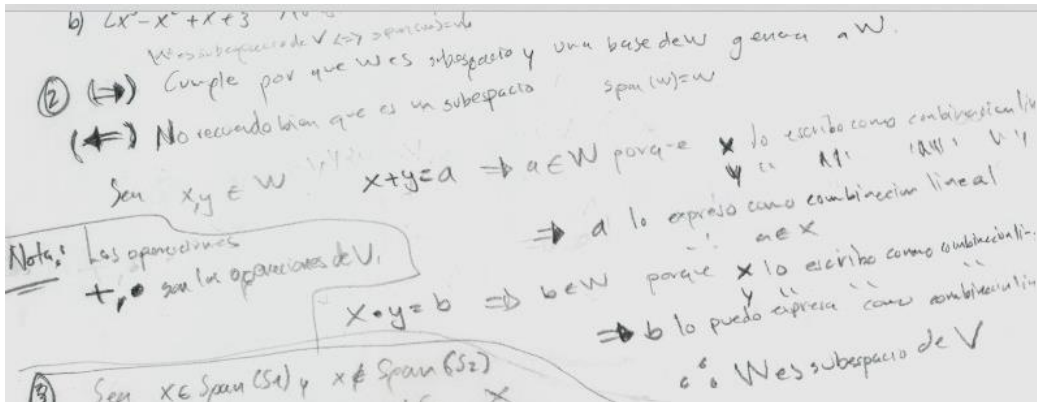 b) 2x³-x²+x+3
W es subespacio de V <=> span(w)=w
② (⇒) Cumple por que W es subespacio y una base de w genera a W.
(⇐) No recuerdo bien que es un subespacio span(w)=w
Sea x,y ∈ W x+y=a ⇒ a∈W porque x lo escribo como combinacion
y " " "
⇒ a lo expreso como combinacion lineal
a∈X
Nota: Las operaciones
+,• son las operaciones de V.
x•y=b ⇒ b∈W porque x lo escribo como combinacion
y " " "
⇒ b lo puedo expresa como combinacion
∴ W es subespacio de V
③ Sea x∈Span(S1) y x∉Span(S2)